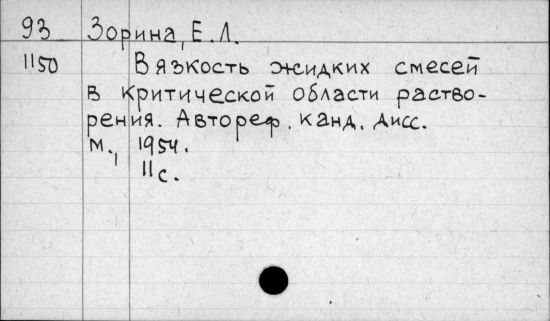 93 Зорина, Е.Л.
1150 Вязкость жидких смесей
в критической области раство-
рения. Автореф. канд. дисс.
М., 1954.
11с.